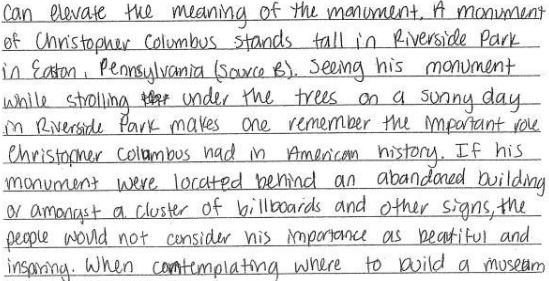 can elevate the meaning of the monument. A monument
of Christopher Columbus stands tall in Riverside Park
in Easton, Pennsylvania (Source B). Seeing his monument
while strolling under the trees on a sunny day
in Riverside Park makes one remember the important role
Christopher Columbus had in American history. If his
monument were located behind an abandoned building
or amongst a cluster of billboards and other signs, the
people would not consider his importance as beautiful and
inspiring. When contemplating where to build a museum